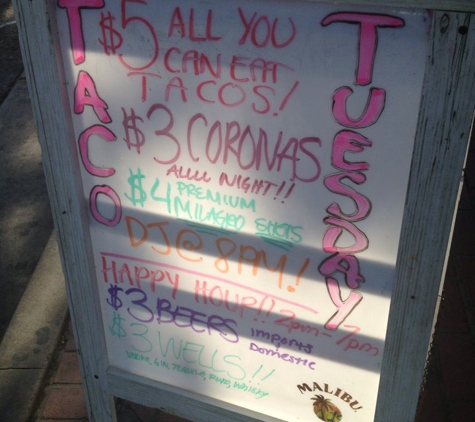 TACO
TUESDAY
$5 ALL YOU
CAN EAT
TACOS!
$3 CORONAS
ALLLL NIGHT!!
$4 PREMIUM
MILAGRO SHOTS
DJ @ 8PM!
HAPPY HOUR!! 2pm-7pm
$3 BEERS Imports
Domestic
$3 WELLS!!
MALIBU